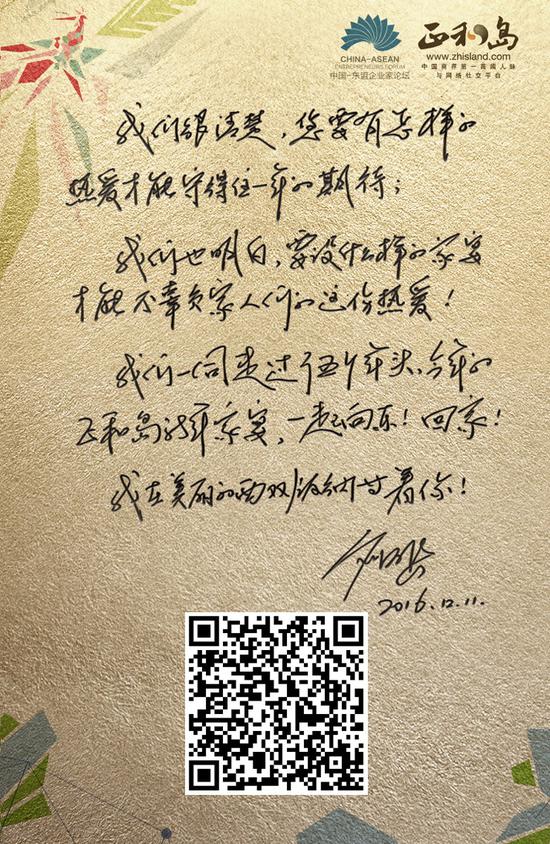 CHINA-ASEAN
ENTREPRENEURS FORUM
中国-东盟企业家论坛
正和岛
www.zhisland.com
中国商界第一高端人脉
与网络社交平台
我们很清楚,您要有怎样的
热爱才能守得住一年的期待;
我们也明白,要设什么样的家宴
才能不辜负家人们的这份热爱!
我们一同走过了五个年头,今年的
正和岛新年家宴,一起向东!回家!
我在美丽的西双版纳等着你!
2016.12.11.